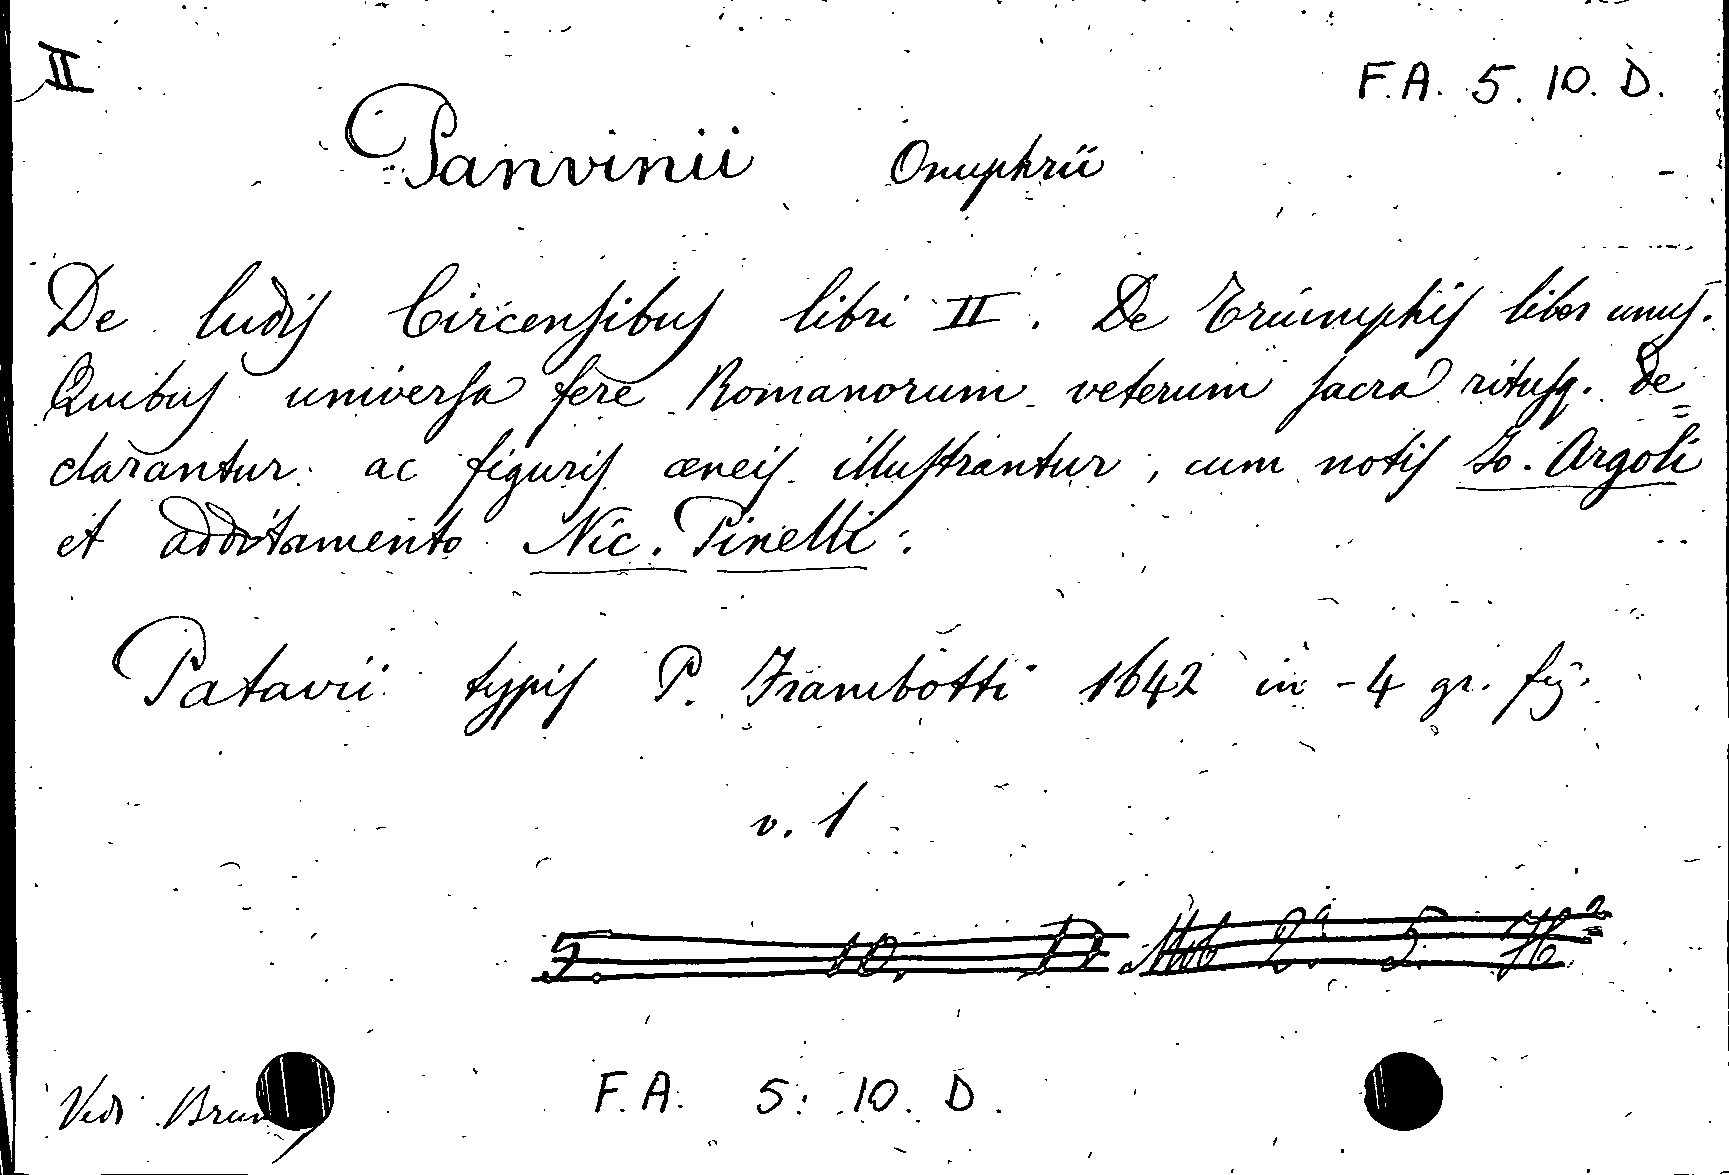 II
F. A. 5. 10. D.
Panvinii Onuphrii
De ludis Circensibus libri II. De Triumphis liber unus.
Quibus universa fere Romanorum veterum sacra ritusq. de=
clarantur ac figuris æneis illustrantur, cum notis Jo. Argoli
et additamento Nic. Pinelli:
Patavii typis P. Frambotti 1642 in-4 gr. fig.
v. 1
5. 10. D
F. A. 5. 10. D.
Vedi